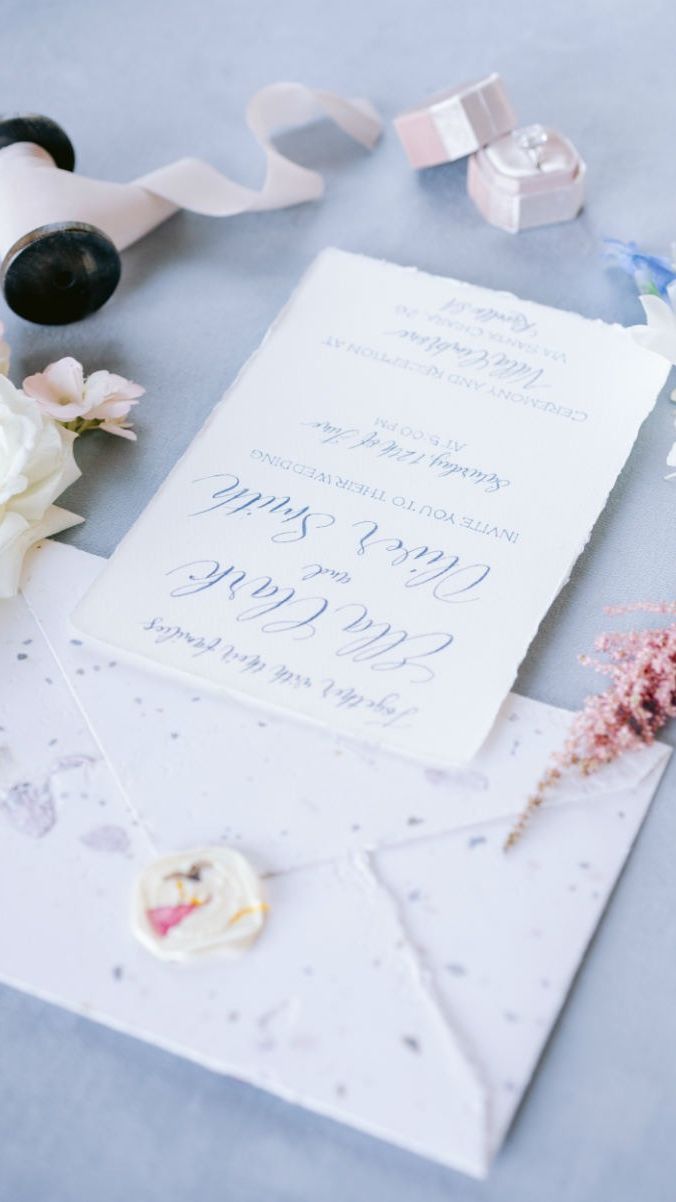 Together with their families
Ella Clark
and
Oliver Smith
INVITE YOU TO THEIR WEDDING
Saturday, 12th of June
AT 5:00 PM
CEREMONY AND RECEPTION AT
Villa Cimbrone
VIA SANTA CHIARA, 26